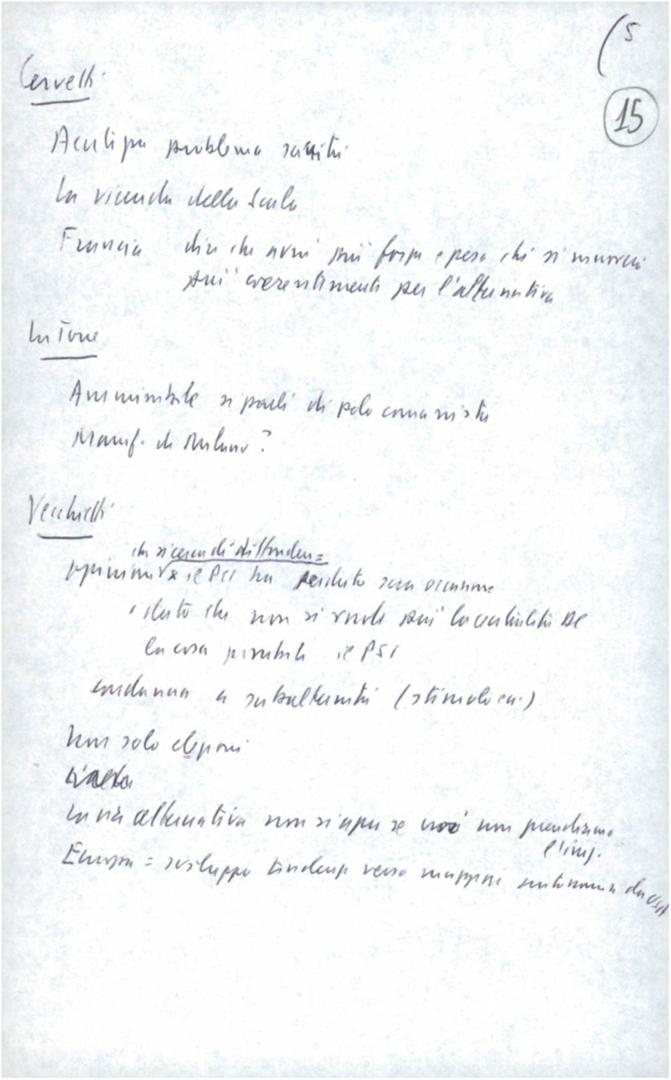 (5
15
Cervetti
problema sanità
La vicenda della Scala
Francia dire che avrà più forza e peso chi si muoverà
più coerentemente per l'alternativa
La Torre
Ammissibile si parli di polo comunista
Manif. di Milano?
Vecchietti
che si cerca di diffondere =
opinione x il PCI ha perduto sua occasione
dato che non si vuole più la centralità DC
la cosa possibile il PSI
condanna a subalternità (stimolo ecc.)
Non solo elezioni
La via alternativa non si apre se noi non prendiamo
l'iniz.
Europa = sviluppo tendenze verso maggiori autonomia da USA